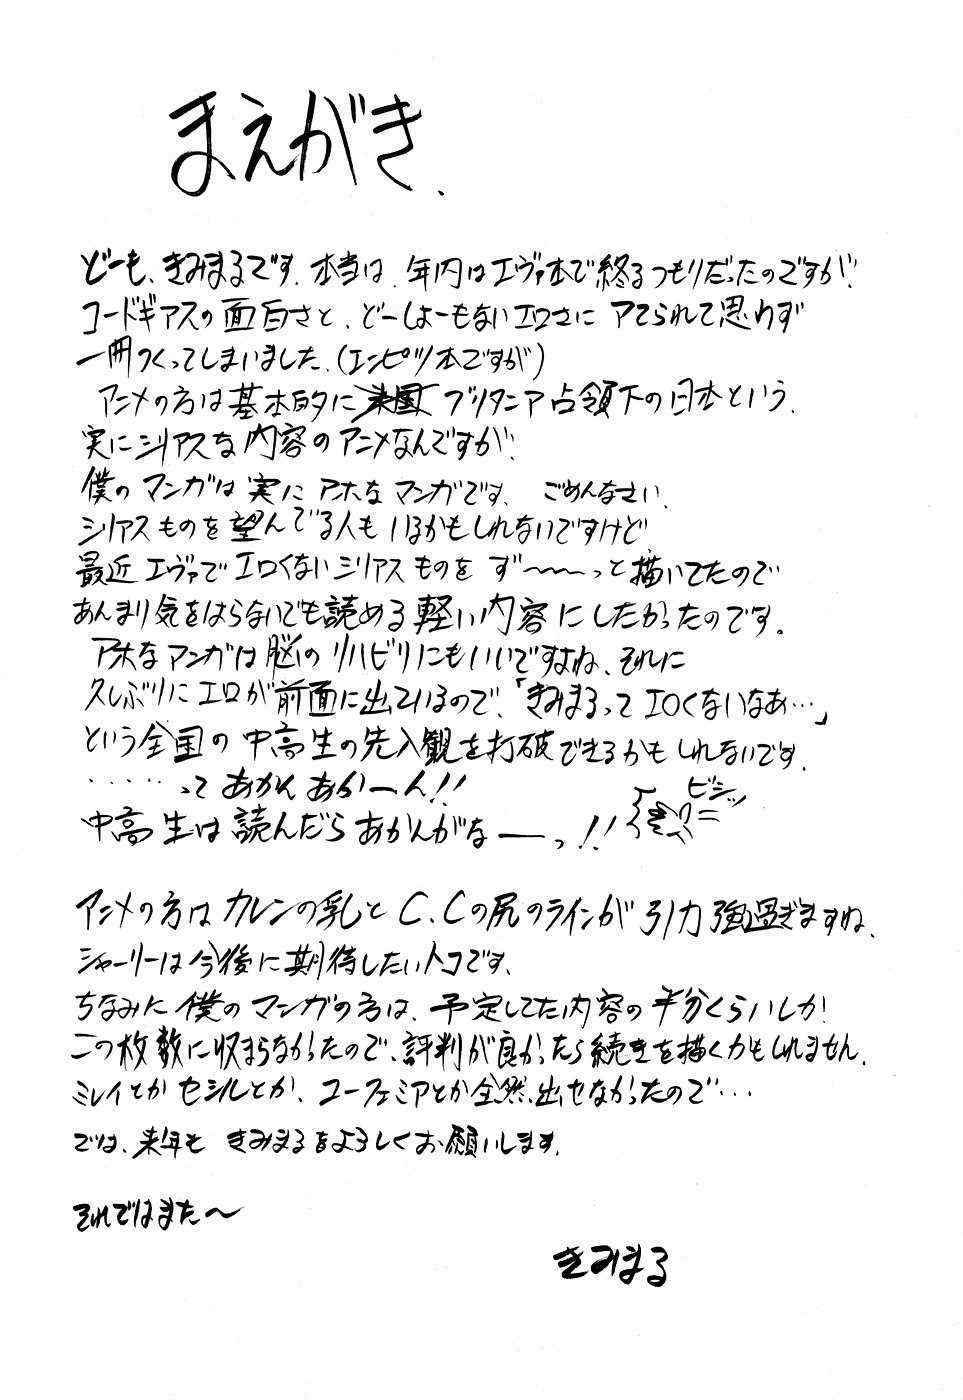 まえがき、
どーも、きみまるです。本当は、年内はエヴァ本で終るつもりだったのですが、
コードギアスの面白さと、どーしょーもないエロさに アてられて思わず
一冊つくってしまいました。(エンピツ本ですが)
アニメの方は基本的に米国ブリタニア占領下の日本という、
実にシリアスな内容のアニメなんですが、
僕のマンガは実にアホなマンガです、ごめんなさい、
シリアスものを望んでる人もいるかもしれないですけど
最近エヴァでエロくないシリアスものを ず〜〜〜っと描いてたので
あんまり気をはらないでも読める軽い内容にしたかったのです。
アホなマンガは脳のリハビリにもいいですよね、それに
久しぶりにエロが前面に出ているので、「きみまるってエロくないなあ…」
という全国の中高生の先入観を打破できるかもしれないです。
・・・・・・って あかんあかーん!!
中高生は読んだらあかんがなーっ!!
ビシッ
アニメの方はカレンの乳とC.Cの尻のラインが引力強過ぎますね、
シャーリーは今後に期待したいトコです、
ちなみに僕のマンガの方は、予定してた内容の半分くらいしか
この枚数に収まらなかったので、評判が良かったら続きを描くかもしれません。
ミレイとかセシルとか、ユーフェミアとか全然出せなかったので…
では、来年も きみまるをよろしくお願いします。
それではまた〜
きみまる